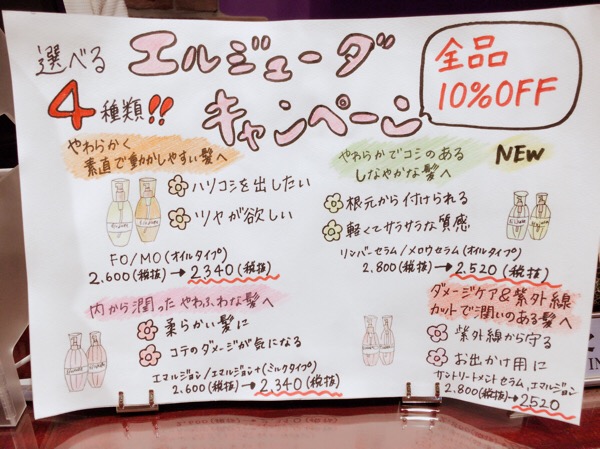 選べる
エルジューダ
4種類!!
キャンペーン
全品
10%OFF
やわらかく
素直で動かしやすい髪へ
ハリコシを出したい
ツヤが欲しい
FO/MO(オイルタイプ)
2.600(税抜)→2.340(税抜)
やわらかでコシのある
しなやかな髪へ
NEW
根元から付けられる
軽くてサラサラな質感
リンバーセラム/メロウセラム(オイルタイプ)
2.800(税抜)→2.520(税抜)
内から潤ったやわふわな髪へ
柔らかい髪に
コテのダメージが気になる
エマルジョン/エマルジョン+(ミルクタイプ)
2.600(税抜)→2.340(税抜)
ダメージケア&紫外線
カットで潤いのある髪へ
紫外線から守る
お出かけ用に
サントリートメントセラム、エマルジョン
2.800(税抜)→2520